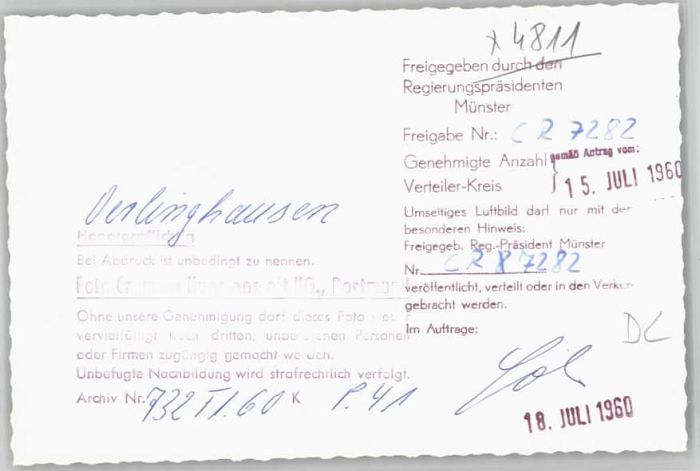 x 4811
Freigegeben durch den
Regierungspräsidenten
Münster
Freigabe Nr.: CR 7282
Genehmigte Anzahl gemäß Antrag vom:
Verteiler-Kreis 15. JULI 1960
Umseitiges Luftbild darf nur mit dem
besonderen Hinweis:
Freigegeb. Reg.-Präsident Münster
Nr. CR 7282
veröffentlicht, verteilt oder in den Verkehr
gebracht werden.
Im Auftrage:
DL
18. JULI 1960
Oerlinghausen
Honorarpflichtig
Bei Abdruck ist unbedingt zu nennen.
Foto Cramers Kunstanstalt KG., Dortmund
Ohne unsere Genehmigung darf dieses Foto weder
vervielfältigt noch dritten, unberechen Personen
oder Firmen zugängig gemacht werden.
Unbefugte Nachbildung wird strafrechtlich verfolgt.
Archiv Nr. 732 II.60 K P.41